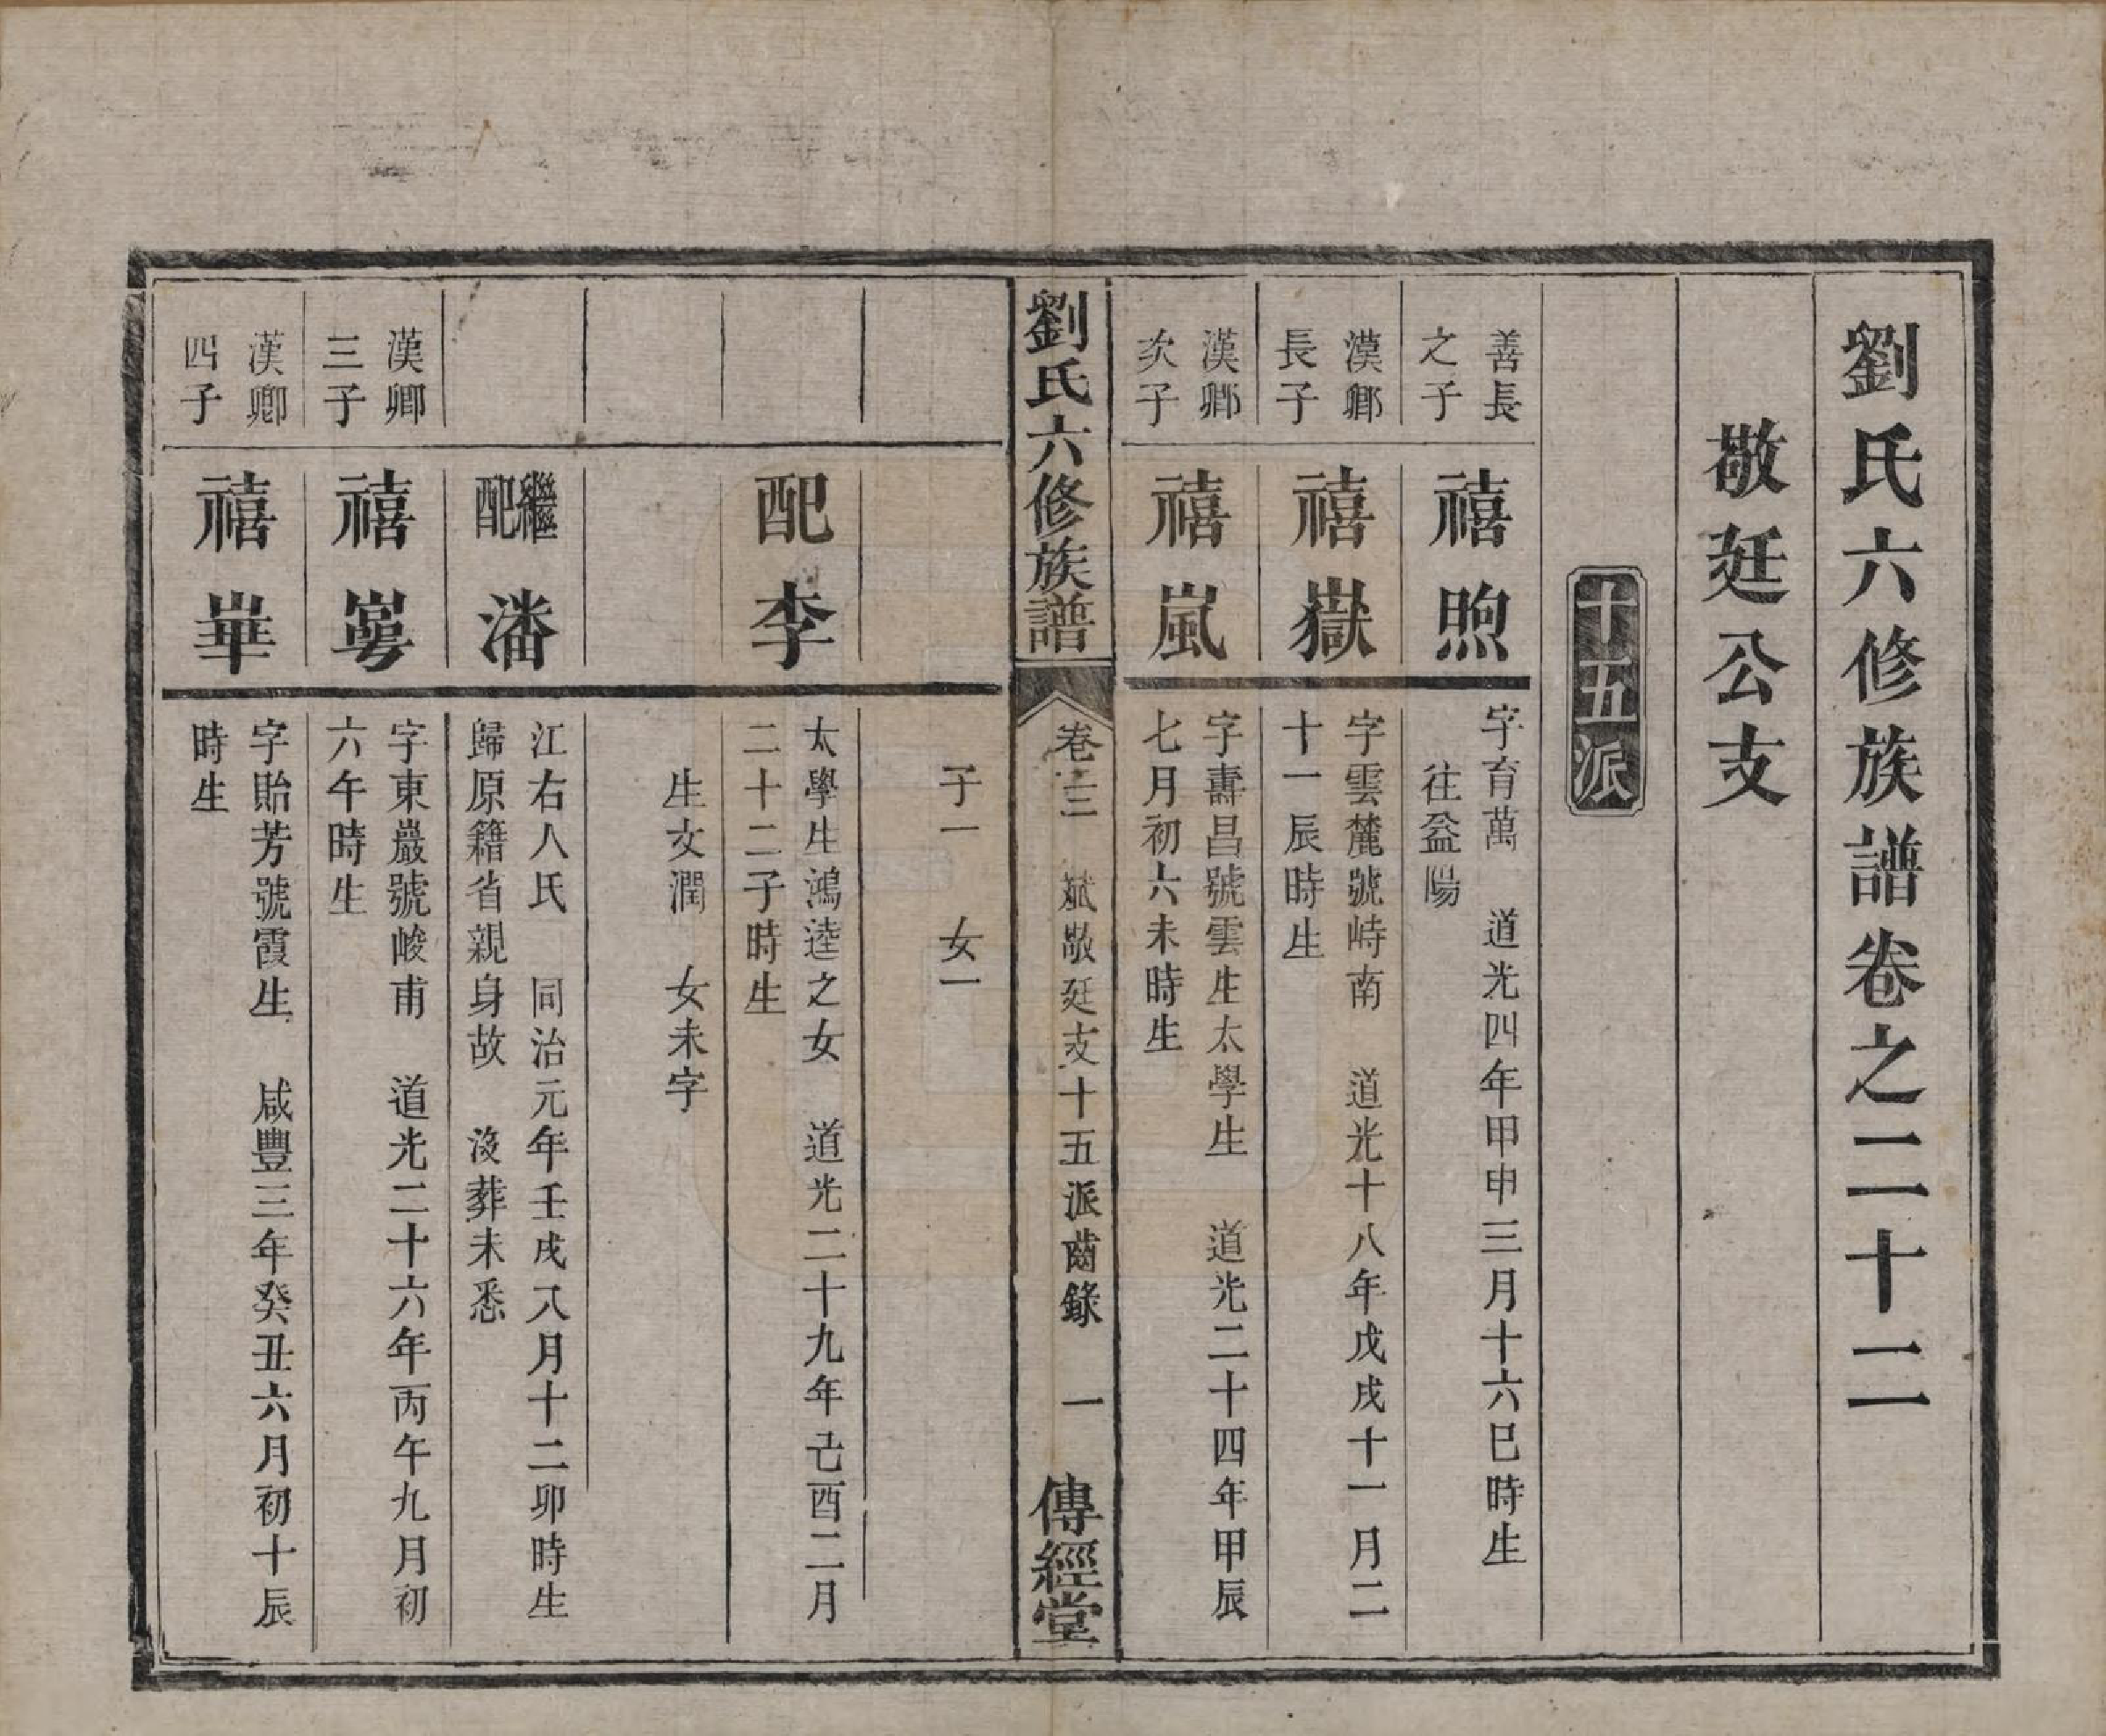 劉氏六修族譜卷之二十二
敬廷公支
十五派
善長之子
禧煦
字育萬　道光四年甲申三月十六巳時生
往益陽
漢鄉長子
禧嶽
字雲麓號峙南　道光十八年戊戌十一月二
十一辰時生
漢鄉次子
禧嵐
字壽昌號雲生太學生　道光二十四年甲辰
七月初六未時生
劉氏六修族譜
卷　敬廷支十五派齒錄　一
傳經堂
子一　女一
配李
太學生鴻逵之女　道光二十九年己酉二月
二十二子時生
生文潤　女未字
繼配潘
江右人氏　同治元年壬戌八月十二卯時生
歸原籍省親身故　沒葬未悉
漢卿三子
禧崿
字東巖號峻甫　道光二十六年丙午九月初
六午時生
漢卿四子
禧崋
字貽芳號霞生　咸豐三年癸丑六月初十辰
時生